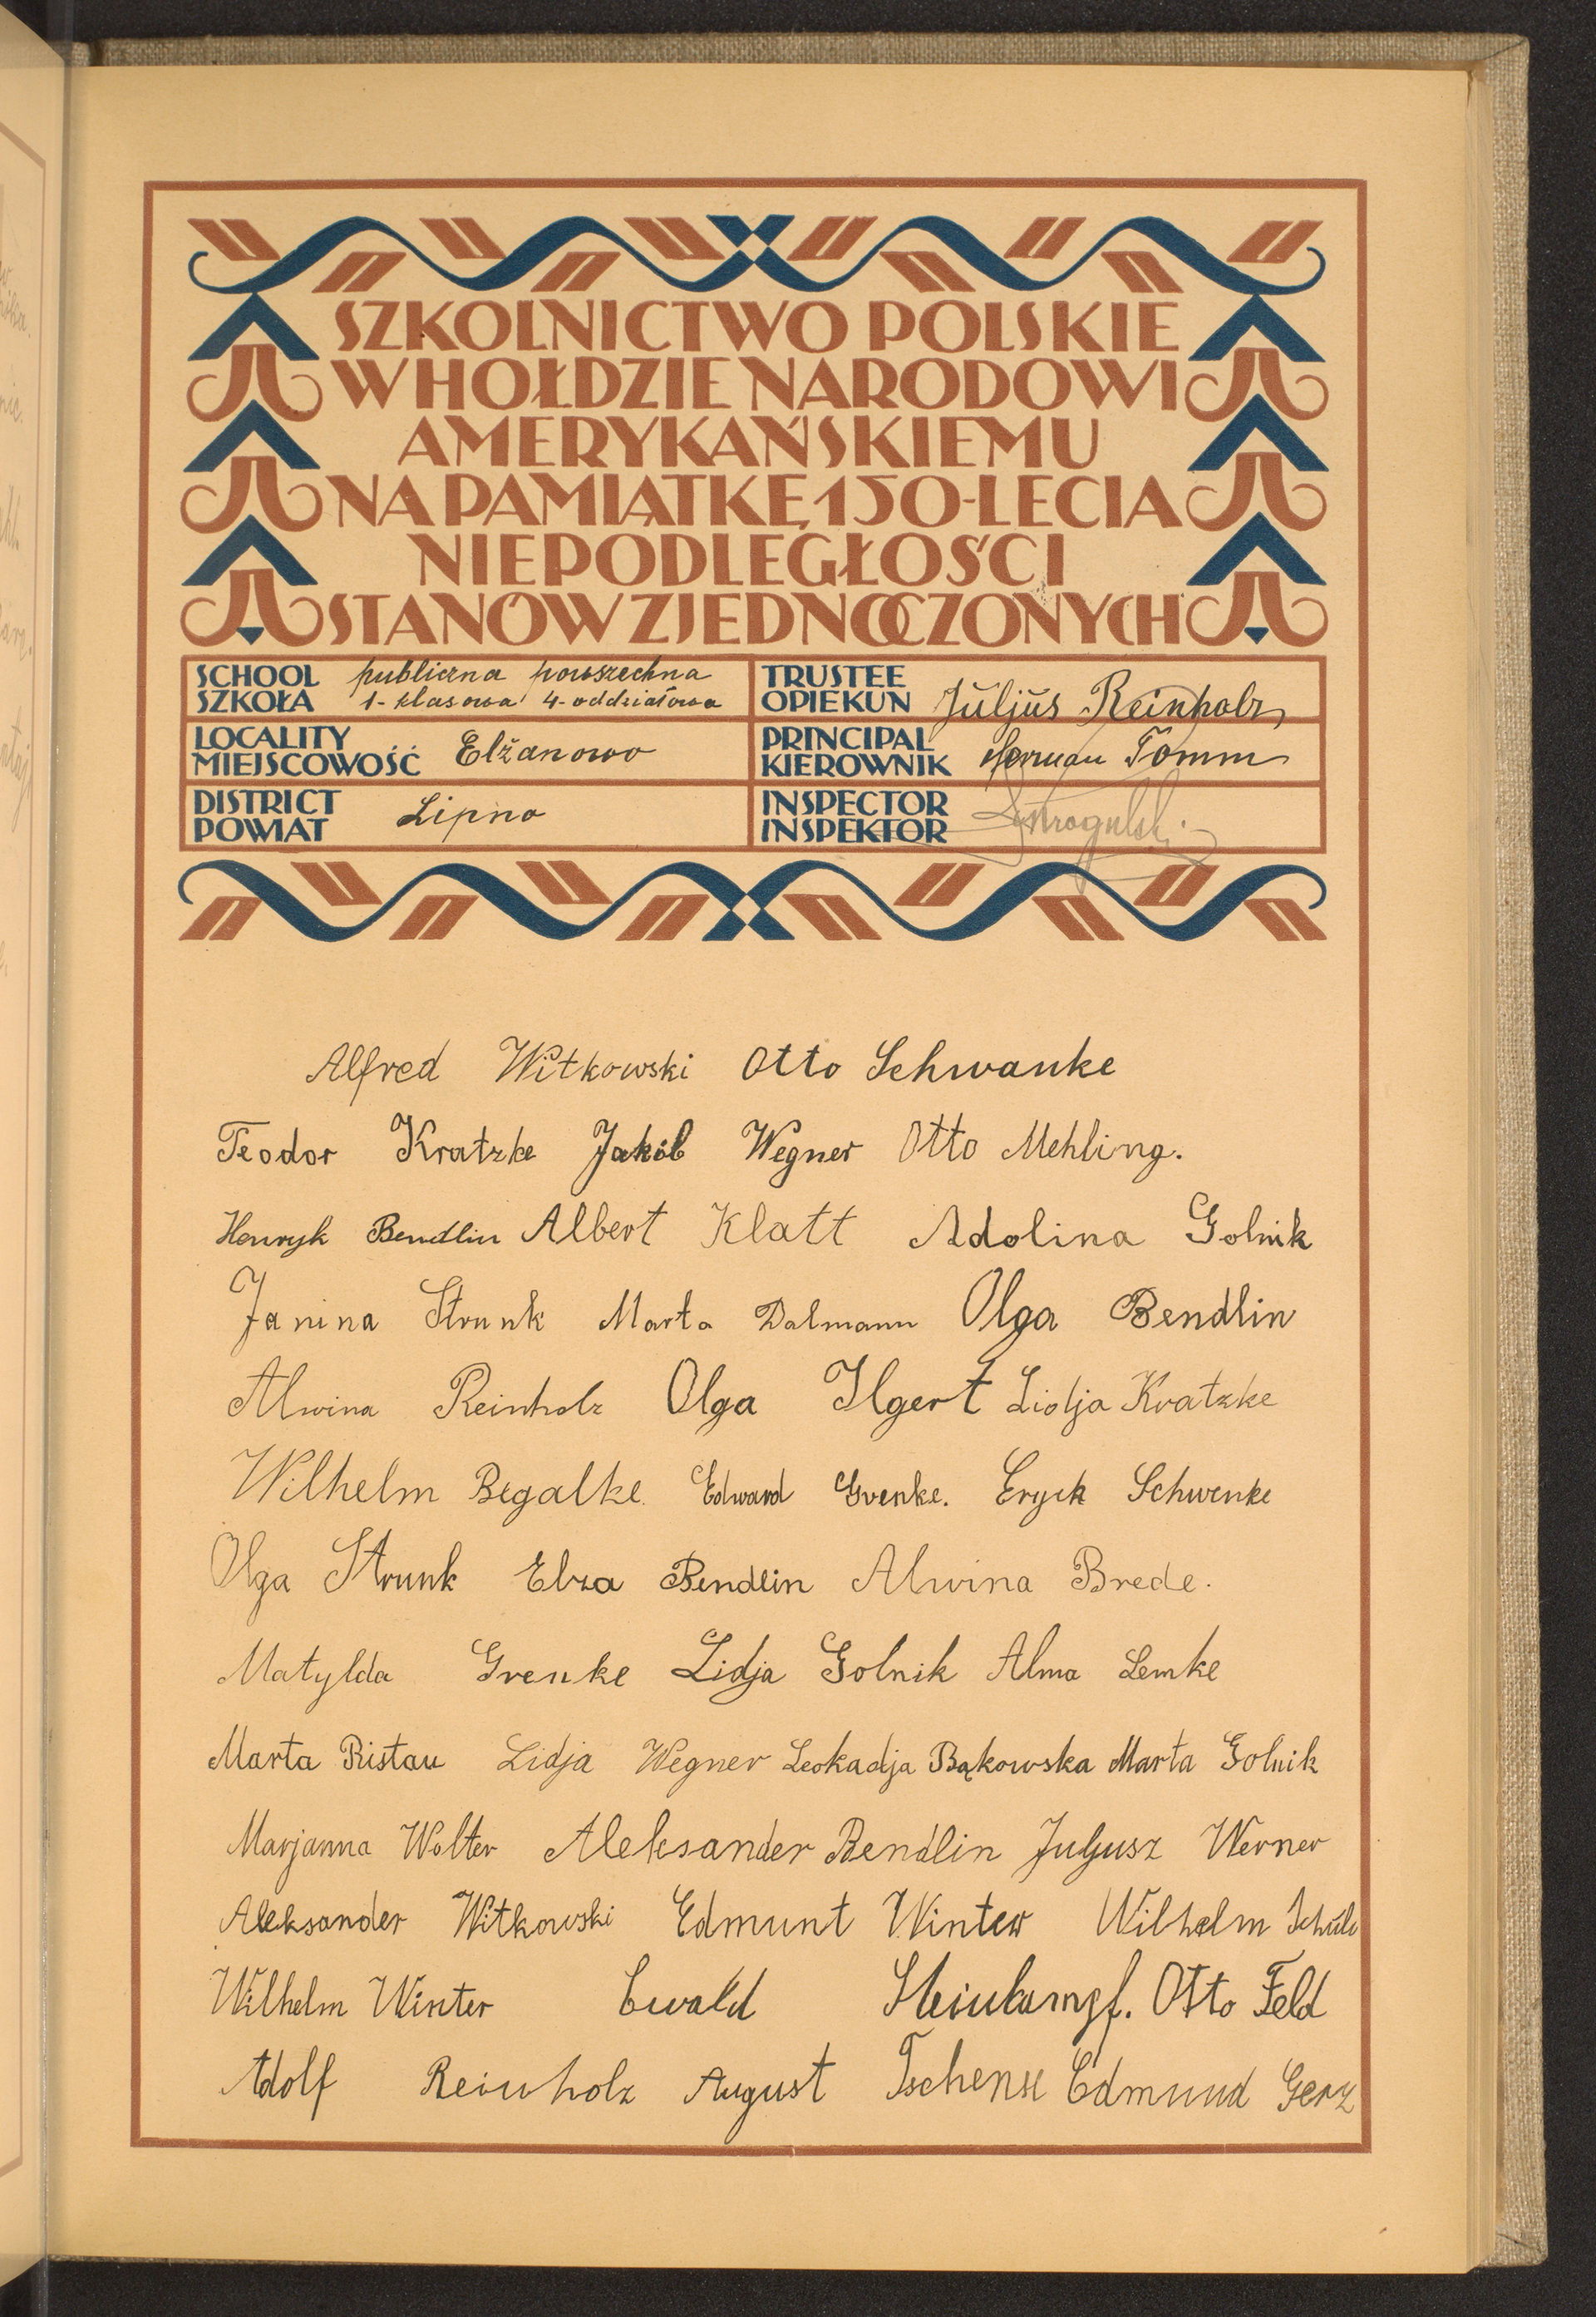 SZKOLNICTWO POLSKIE
W HOŁDZIE NARODOWI
AMERYKAŃSKIEMU
NA PAMIĄTKĘ 150-LECIA
NIEPODLEGŁOŚCI
STANÓW ZJEDNOCZONYCH
SCHOOL publiczna powszechna
SZKOŁA 1-klasowa 4-oddziałowa
TRUSTEE
OPIEKUN Juljus Reinholz
LOCALITY
MIEJSCOWOŚĆ Elżanowo
PRINCIPAL
KIEROWNIK Herman Tomm
DISTRICT
POWIAT Lipno
INSPECTOR
INSPEKTOR
Alfred Witkowski Otto Schwanke
Teodor Kratzke Jakób Wegner Otto Mehling.
Henryk Bendlin Albert Klatt Adolina Golnik
Janina Strunk Marta Dalmann Olga Bendlin
Alwina Reinholz Olga Ilgert Lidja Kratzke
Wilhelm Begalke. Edward Grenke. Eryck Schwenke
Olga Strunk Elza Bendlin Alwina Brede.
Matylda Grenke Lidja Golnik Alma Lemke
Marta Ristau Lidja Wegner Leokadja Bąkowska Marta Golnik
Marjanna Wolter Aleksander Bendlin Juljusz Werner
Aleksander Witkowski Edmunt Winter Wilhelm
Wilhelm Winter Ewald Steinkampf. Otto Feld
Adolf Reinholz August Tschense Edmund Gerz